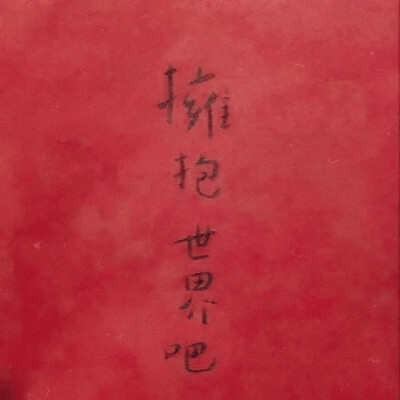 擁抱世界吧